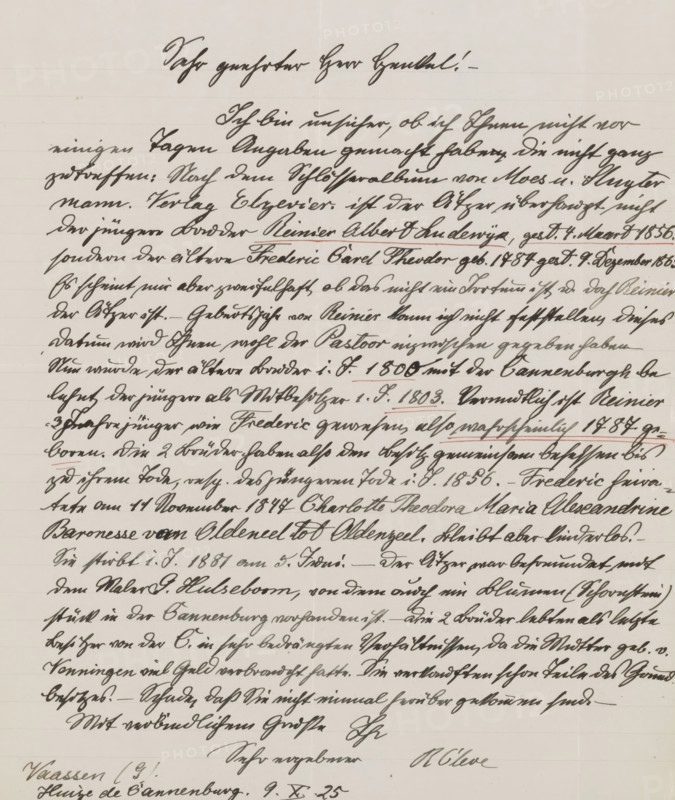 Sehr geehrter Herr Henkel! –
Ich bin unsicher, ob ich Ihnen nicht vor
einigen Tagen Angaben gemacht habe, die nicht ganz
zutreffen: Nach dem Schlösseralbum von Moes u. Sluyter
mann. Verlag Elzevier. ist der Ätzer überhaupt nicht
der jüngere Bruder Reinier Albert Ludewijk, gest. 4. Maard 1856.
sondern der ältere Frederic Carel Theodor geb. 1787 gest. 9. Dezember
Es scheint mir aber zweifelhaft, ob das nicht ein Irrtum ist u. doch Reinier
der Ätzer ist. – Geburtsjahr von Reinier kann ich nicht feststellen, dieses
Datum wird Ihnen wohl der Pastoor inzwischen gegeben haben
Nun wurde der ältere Bruder i. J. 1800 mit der Cannenburgh be
lehnt der jüngere als Mitbesitzer i. J. 1803. Vermutlich ist Reinier
3 Jahre jünger wie Frederic gewesen, also wahrscheinlich 1787 ge-
boren. Die 2 Brüder haben also den Besitz gemeinsam besessen bis
zu ihrem Tode, resp. des jüngeren Tode i. J. 1856. – Frederic heira-
tete am 11 November 1847 Charlotte Theodora Maria Alexandrine
Baronesse van Oldeneel tot Oldenzeel. bleibt aber kinderlos. –
Sie stirbt i. J. 1881 am 5. Juni. – Der Ätzer war befreundet mit
dem Maler G. Hulseboom, von dem auch ein Blumen (Schoornstein)
stück in der Cannenburg vorhanden ist. – Die 2 Brüder lebten als letzte
Besitzer von der C. in sehr bedrängten Verhältnissen, da die Mutter geb. v.
Venningen viel Geld verbraucht hatte. Sie verkauften schon Teile des Grund
besitzes. – Schade, daß Sie nicht einmal herüber gekommen sind –
Mit verbindlichem Gruße Ihr
Sehr ergebener R Cleve
Vaassen (G).
Huize de Cannenburg. 9. X. 25
PHOTO12